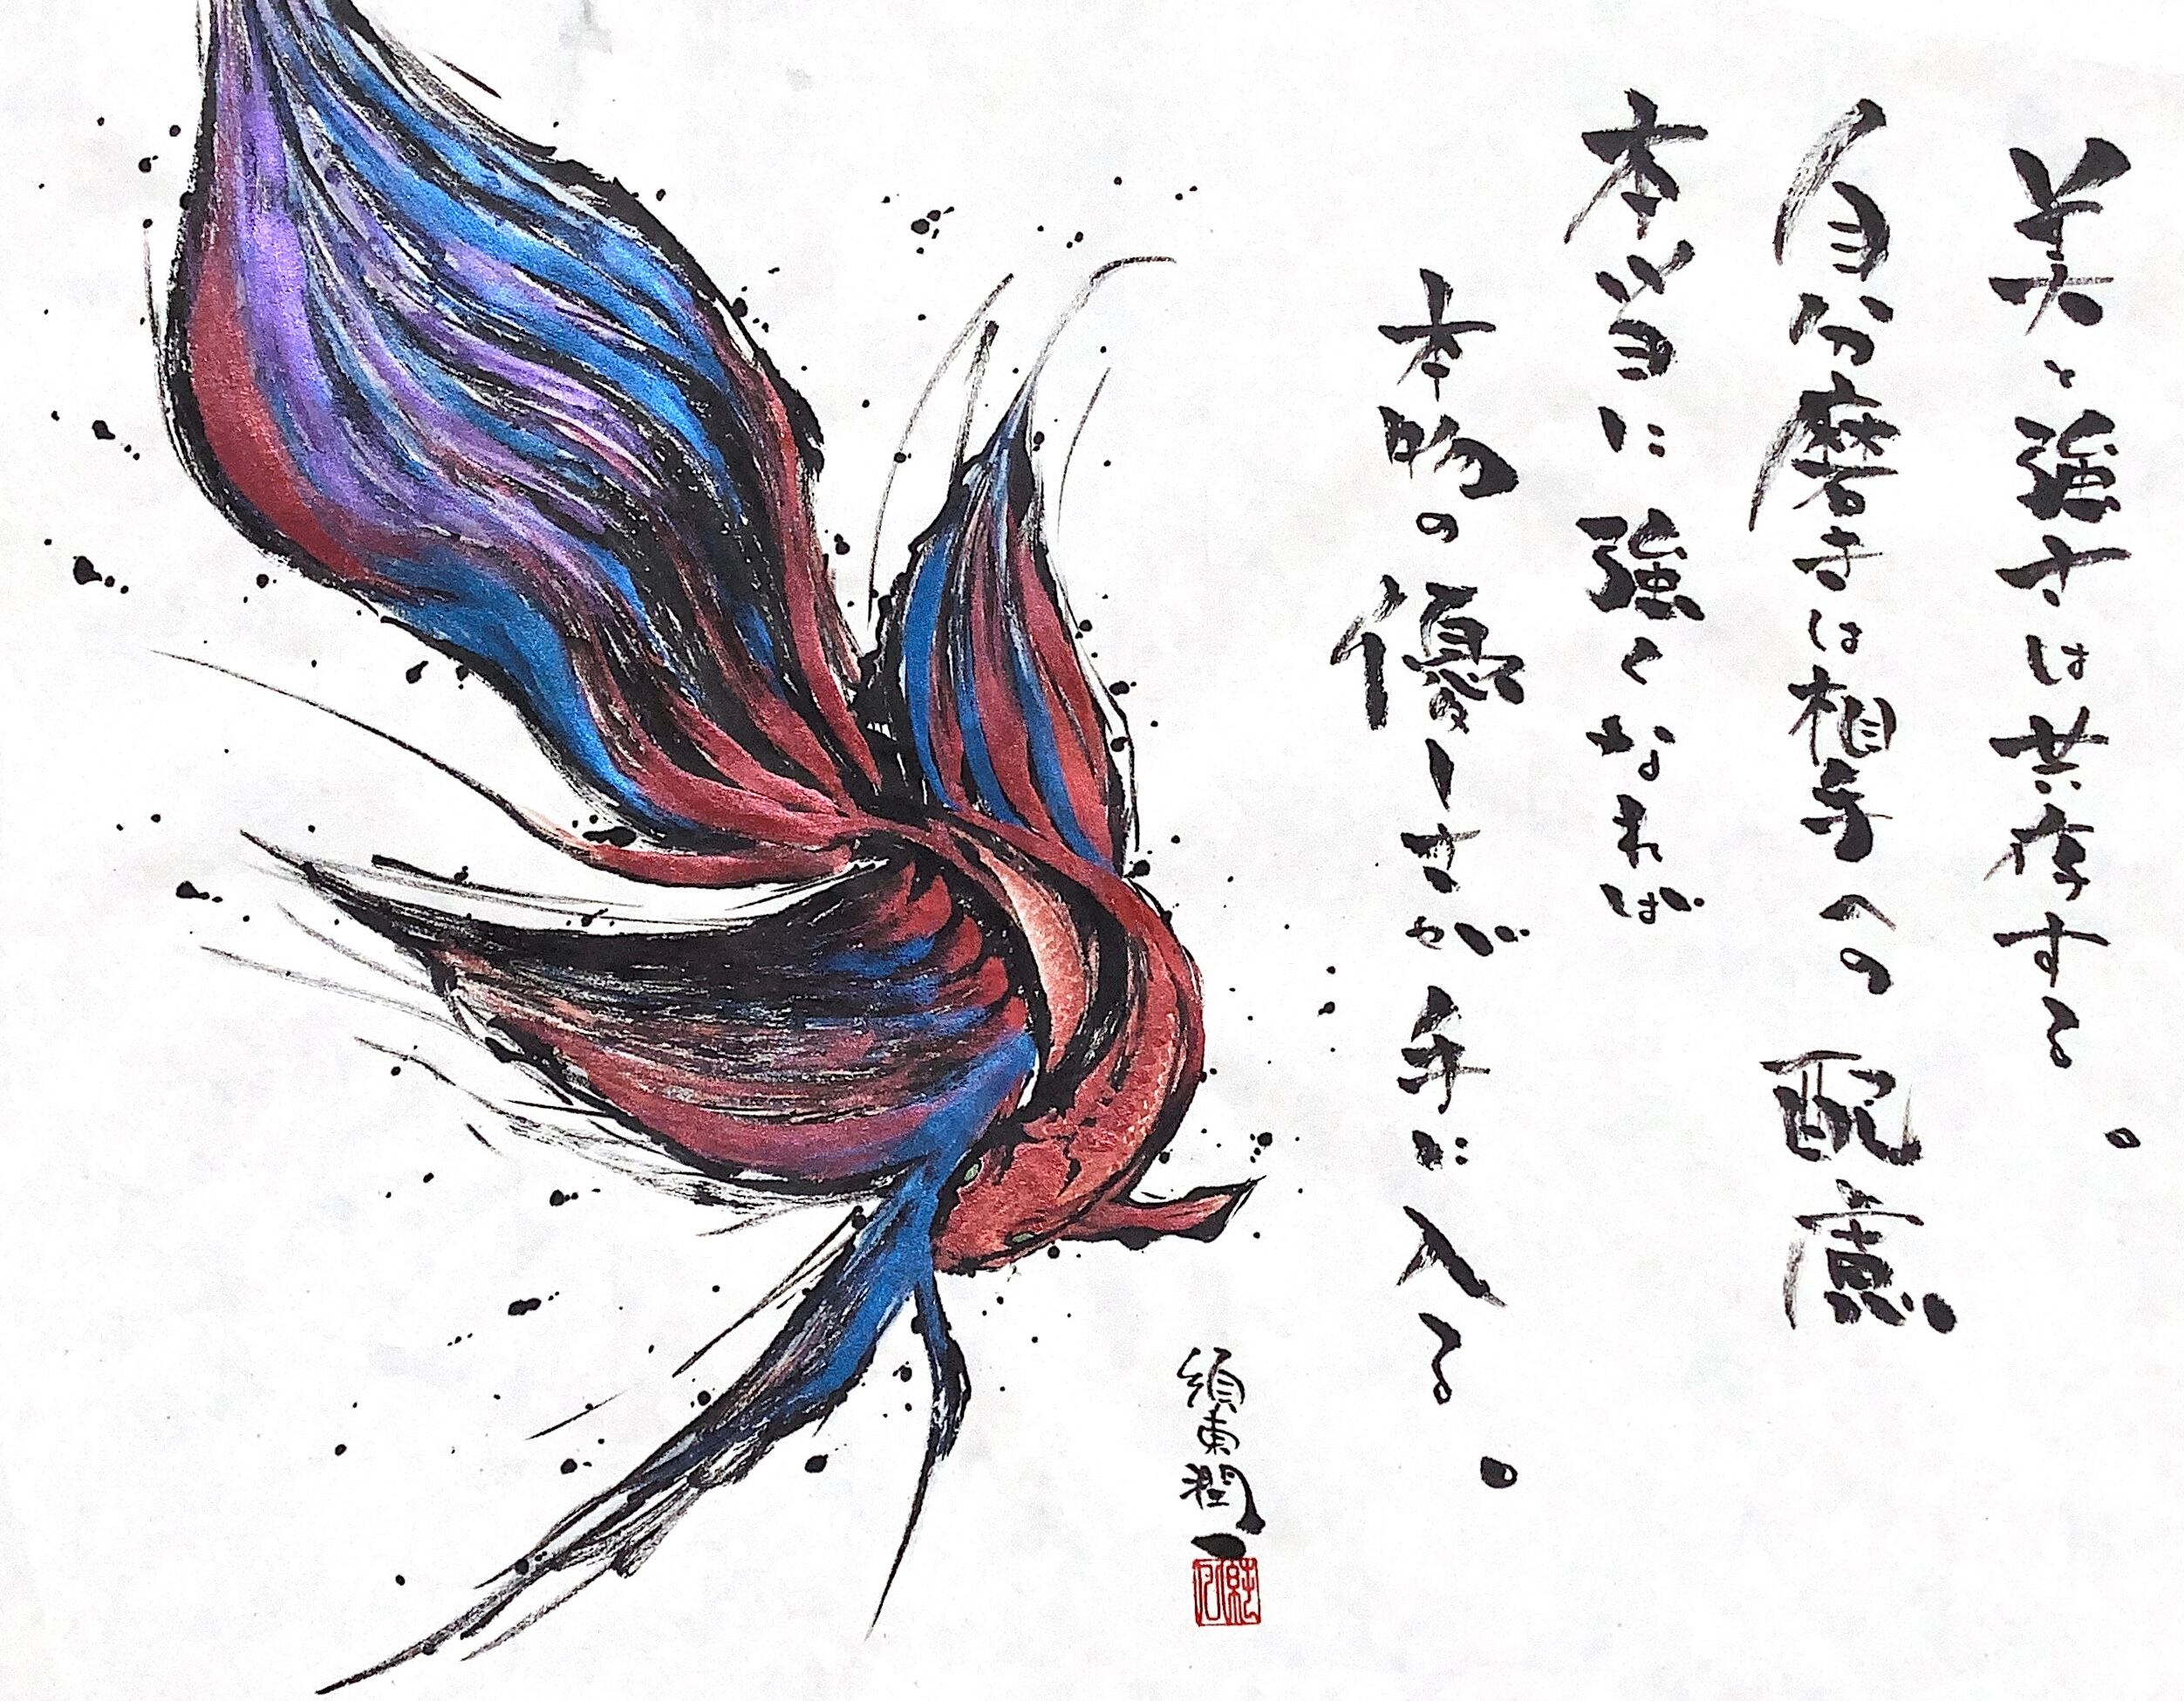 美と強さは共存する。
自分磨きは相手への配慮
本当に強くなれば
本物の優しさが手に入る。
須東潤一